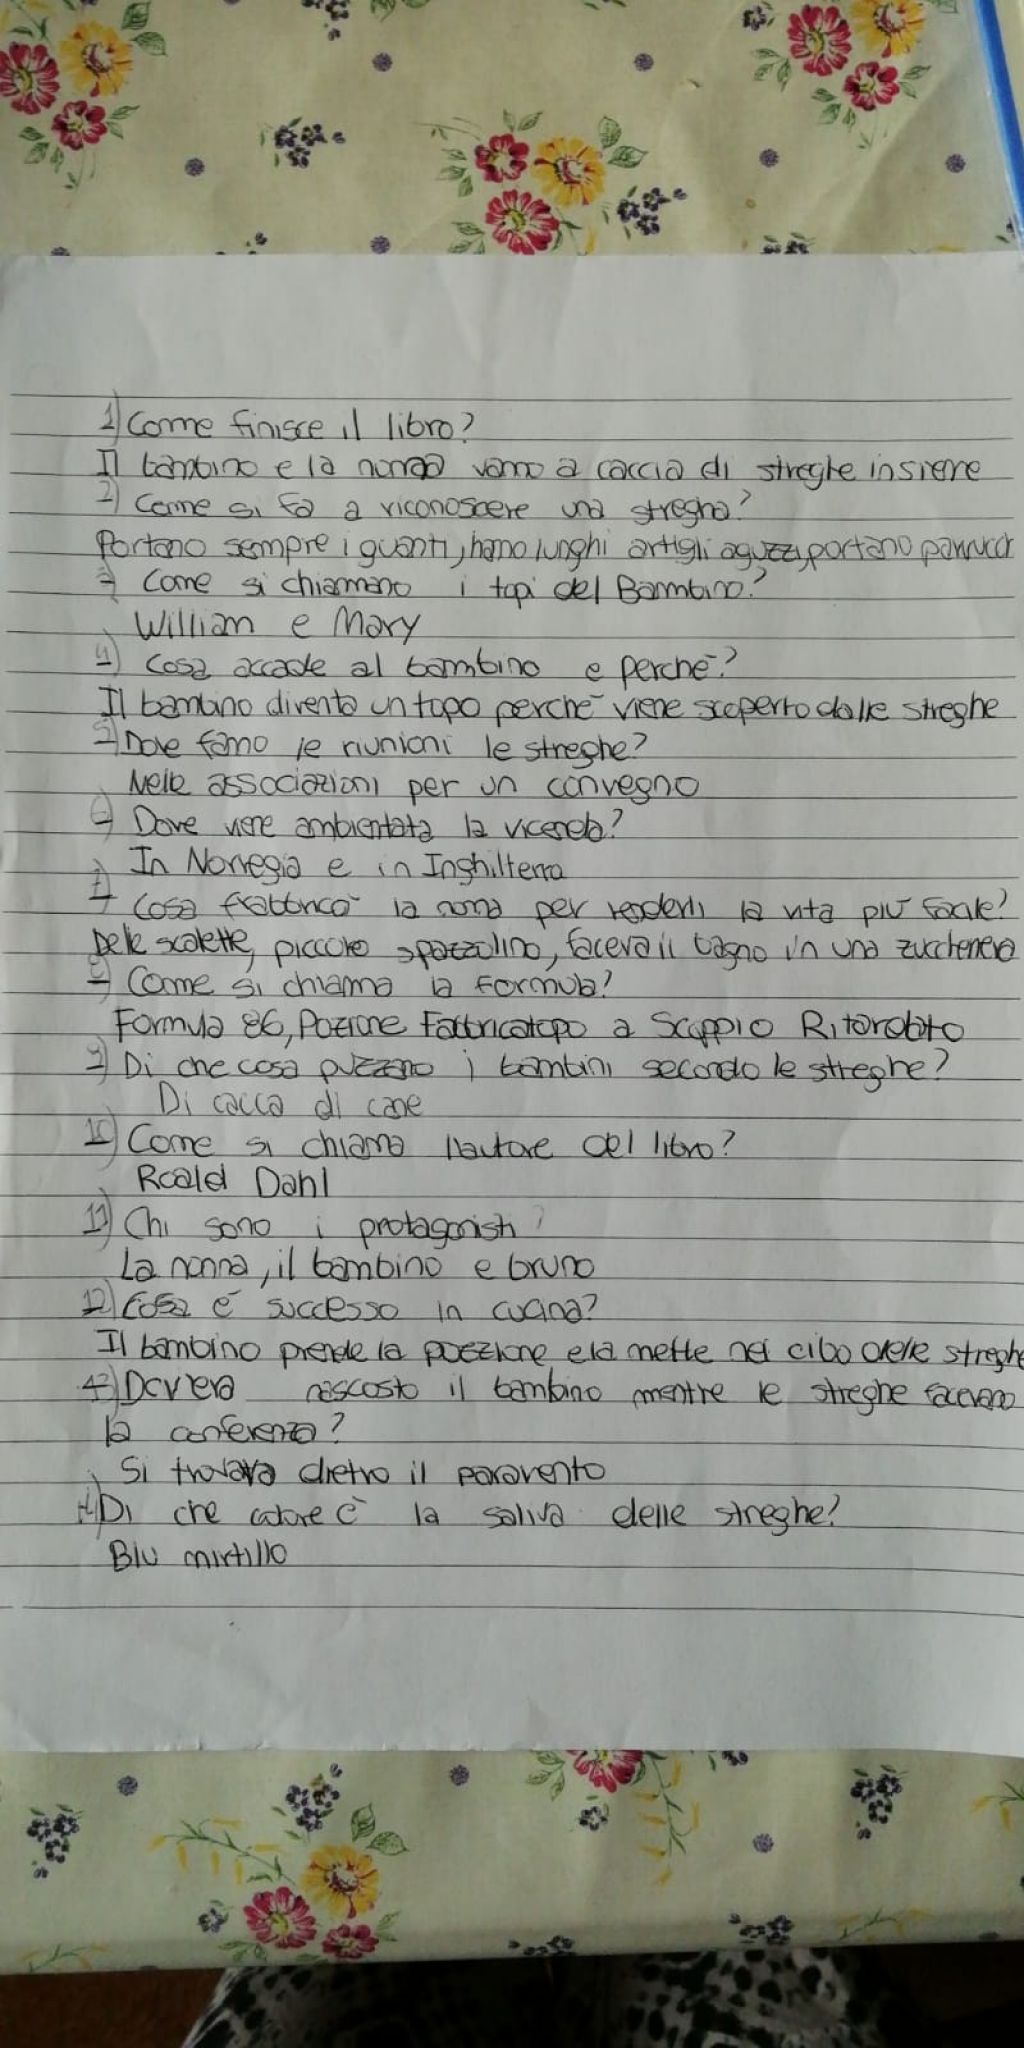 1) Come finisce il libro?
Il bambino e la nonna vanno a caccia di streghe insieme
2) Come si fa a riconoscere una strega?
Portano sempre i guanti, hanno lunghi artigli aguzzi, portano parrucch
3) Come si chiamano i topi del Bambino?
William e Mary
4) Cosa accade al bambino e perché?
Il bambino diventa un topo perché viene scoperto dalle streghe
5) Dove fanno le riunioni le streghe?
Nelle associazioni per un convegno
6) Dove viene ambientata la vicenda?
In Norvegia e in Inghilterra
7) Cosa frabbricò la nonna per renderli la vita più facile?
Delle scalette, piccolo spazzolino, faceva il bagno in una zuccheriera
8) Come si chiama la formula?
Formula 86, Pozione Fabbricatopo a Scoppio Ritardato
9) Di che cosa puzzano i bambini secondo le streghe?
Di cacca di cane
10) Come si chiama l'autore del libro?
Roald Dahl
11) Chi sono i protagonisti?
La nonna, il bambino e bruno
12) Cosa é successo in cucina?
Il bambino prende la pozione e la mette nel cibo delle streghe
13) Dov'era nascosto il bambino mentre le streghe facevano
la conferenza?
Si trovava dietro il paravento
14) Di che colore è la saliva delle streghe?
Blu mirtillo